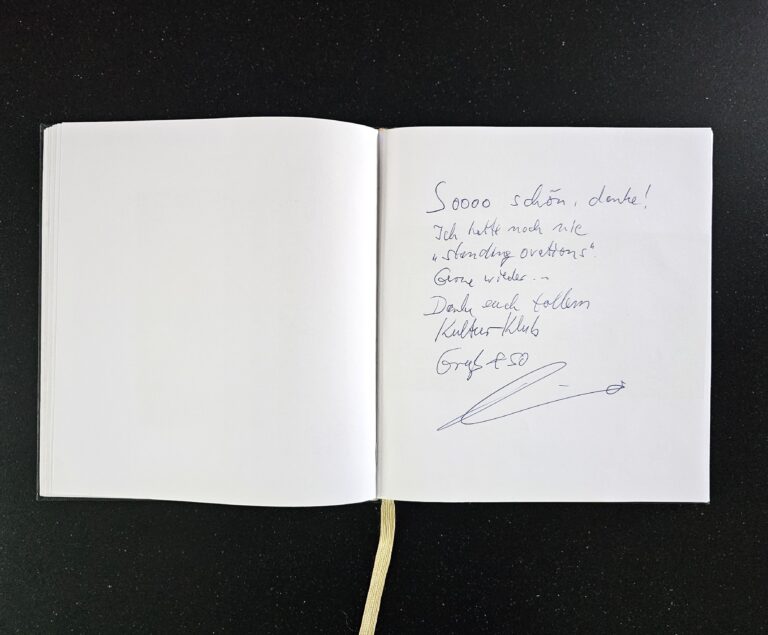 Soooo schön, danke!
Ich hatte noch nie
„standing ovations“.
Gerne wieder...
Danke euch tollem
Kultur-Klub
Gruß